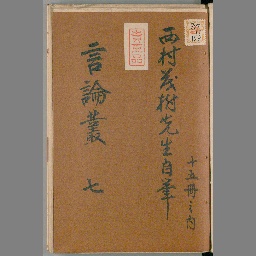 西村茂樹先生自筆
十五冊之内
言論叢 七